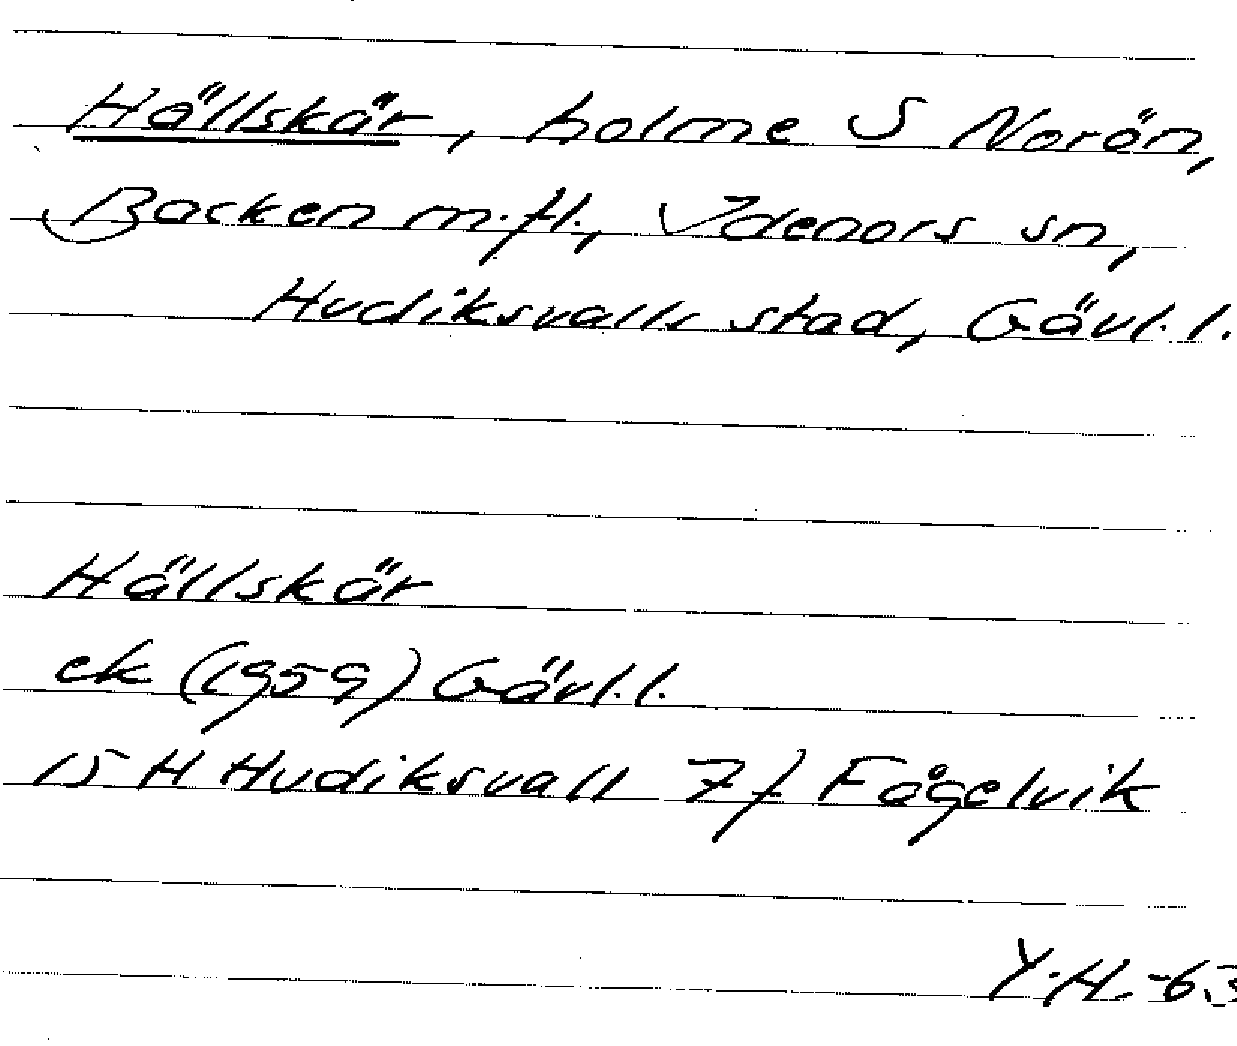 Hällskär, holme S Norön,
Backen m.fl., Idenors sn,
Hudiksvalls stad, Gävl.l.
Hällskär
ek (1959) Gävl.l.
15 H Hudiksvall 7f Fågelvik
Y.H. -63